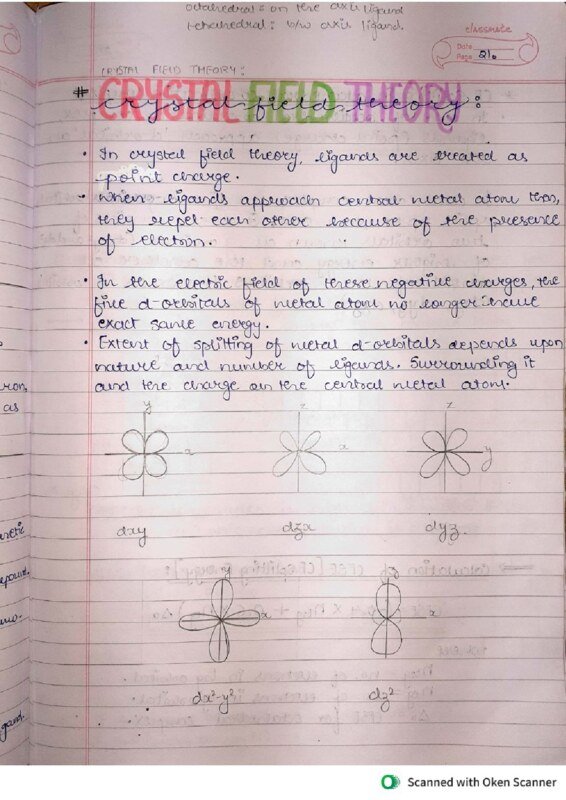 octahedral: on the axis ligand
tetrahedral: b/w axis ligand.
classmate
Date
Page 216
CRYSTAL FIELD THEORY:
# CRYSTAL FIELD THEORY
crystal field theory:
• In crystal field theory, ligands are treated as
point charge.
• When ligands approach central metal atom then,
they repel each other because of the presence
of electron.
• In the electric field of these negative charges, the
five d-orbitals of metal atom no longer have
exact same energy.
• Extent of splitting of metal d-orbitals depends upon
nature and number of ligands. Surrounding it
and the charge on the central metal atom.
ron,
as
y
z
z
x
x
y
dxy
dzx
dyz
netic
y
z
x
x
dx²-y²
dz²
gand.
Scanned with Oken Scanner